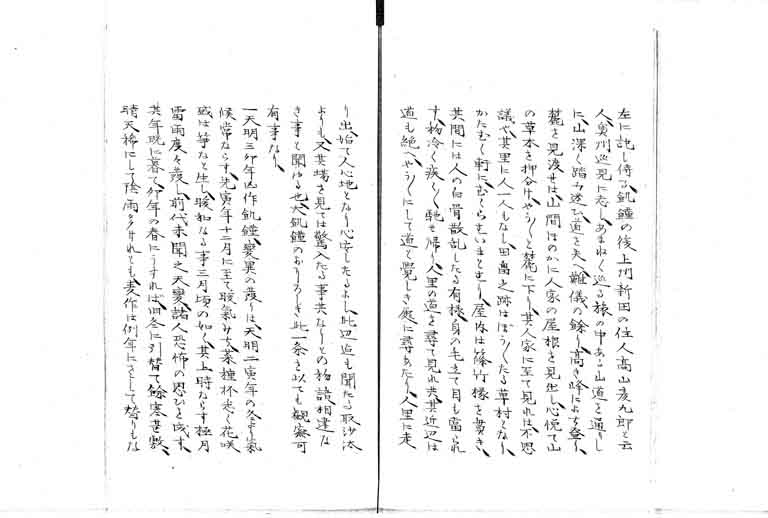 左に記し侍る飢饉の後上州新田の住人高山彦九郎と云
人奥州巡見に志しあまねく巡る旅の中ある山道を通りし
に山深く踏み迷ひ道を失へ難儀の餘り高き峰によぢ登り
麓を見渡せは山間ほのかに人家の屋根を見出し心悦て山
の草木を押分けやう〱と麓に下り其人家に至て見れは不思
議や其里に人一人もなし田畠之跡はぼう〱たる草村となり
かたむく軒にむくらをいまとむし屋内は篠竹椽を貫き
其間には人の白骨散乱したる有様身の毛立て目も當られ
す物冷く疾く〱馳せ帰り人里の道を尋て見れ共其近辺は
道も絶へやう〱にして道と覺しき処に尋あたり人里に走
り出始て人心地となり心安したるよし此辺迄も聞たる取沙汰
よりも又其場を見ては驚入たる事共なりとの物語相違な
き事と聞ゆる也大飢饉のおそろしき此一条を以ても観察可
有事なり
一天明三卯年凶作飢饉變異の発りは天明二寅年の冬より氣
候常ならす先寅年十二月に至て暖氣み大菜種抔悉く花咲
或は筝なと生し暖和なる事三月頃の如く其上時ならす極月
雷雨度々発し前代未聞之天變諸人恐怖の思ひを成す
其年既に暮て卯年の春にうすれは旧冬に引替て餘寒甚敷
晴天稀にして陰雨多けれとも麦作は例年にさして替りもな